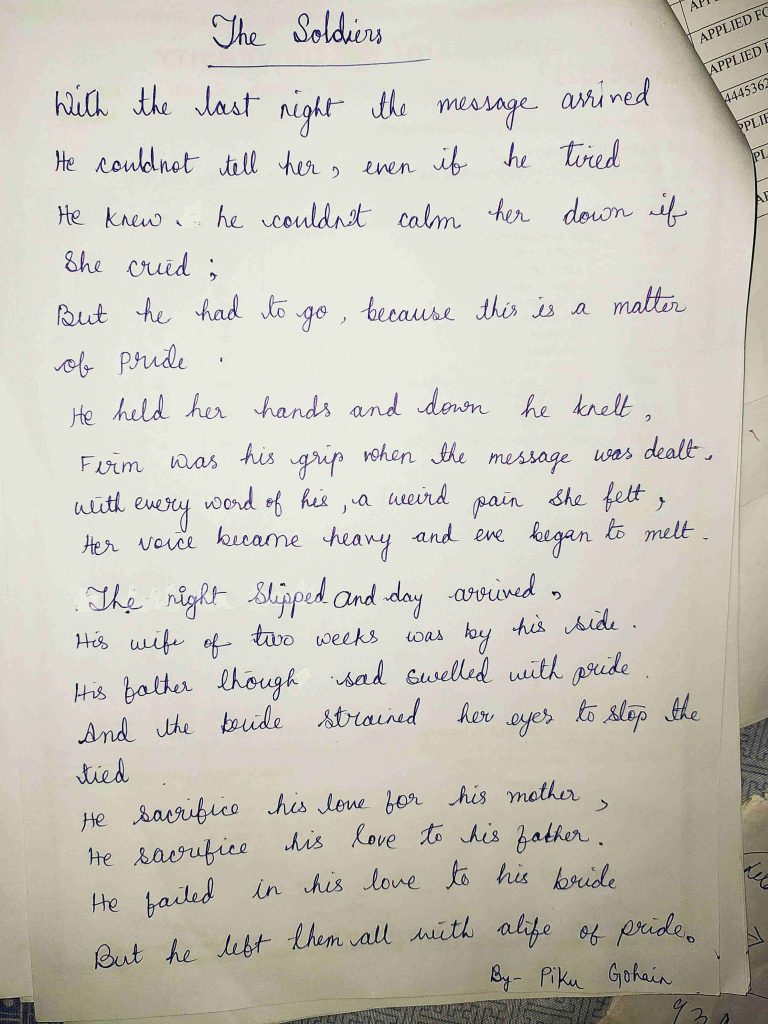 The Soldiers
With the last night the message arrived
He couldnot tell her, even if he tired
He knew. he couldn't calm her down if
She cried ;
But he had to go, because this is a matter
of pride .
He held her hands and down he knelt,
Firm was his grip when the message was dealt.
with every word of his, a weird pain she felt,
Her voice became heavy and eve began to melt.
The night slipped and day arrived,
His wife of two weeks was by his side.
His father though sad swelled with pride.
And the bride strained her eyes to stop the
tied
He sacrifice his love for his mother,
He sacrifice his love to his father.
He failed in his love to his bride
But he left them all with alife of pride.
By- Piku Gohain
APPLIED FO
APPLIED
4445362